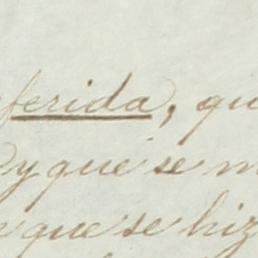 ferida, qu
y que se m
que se hiz